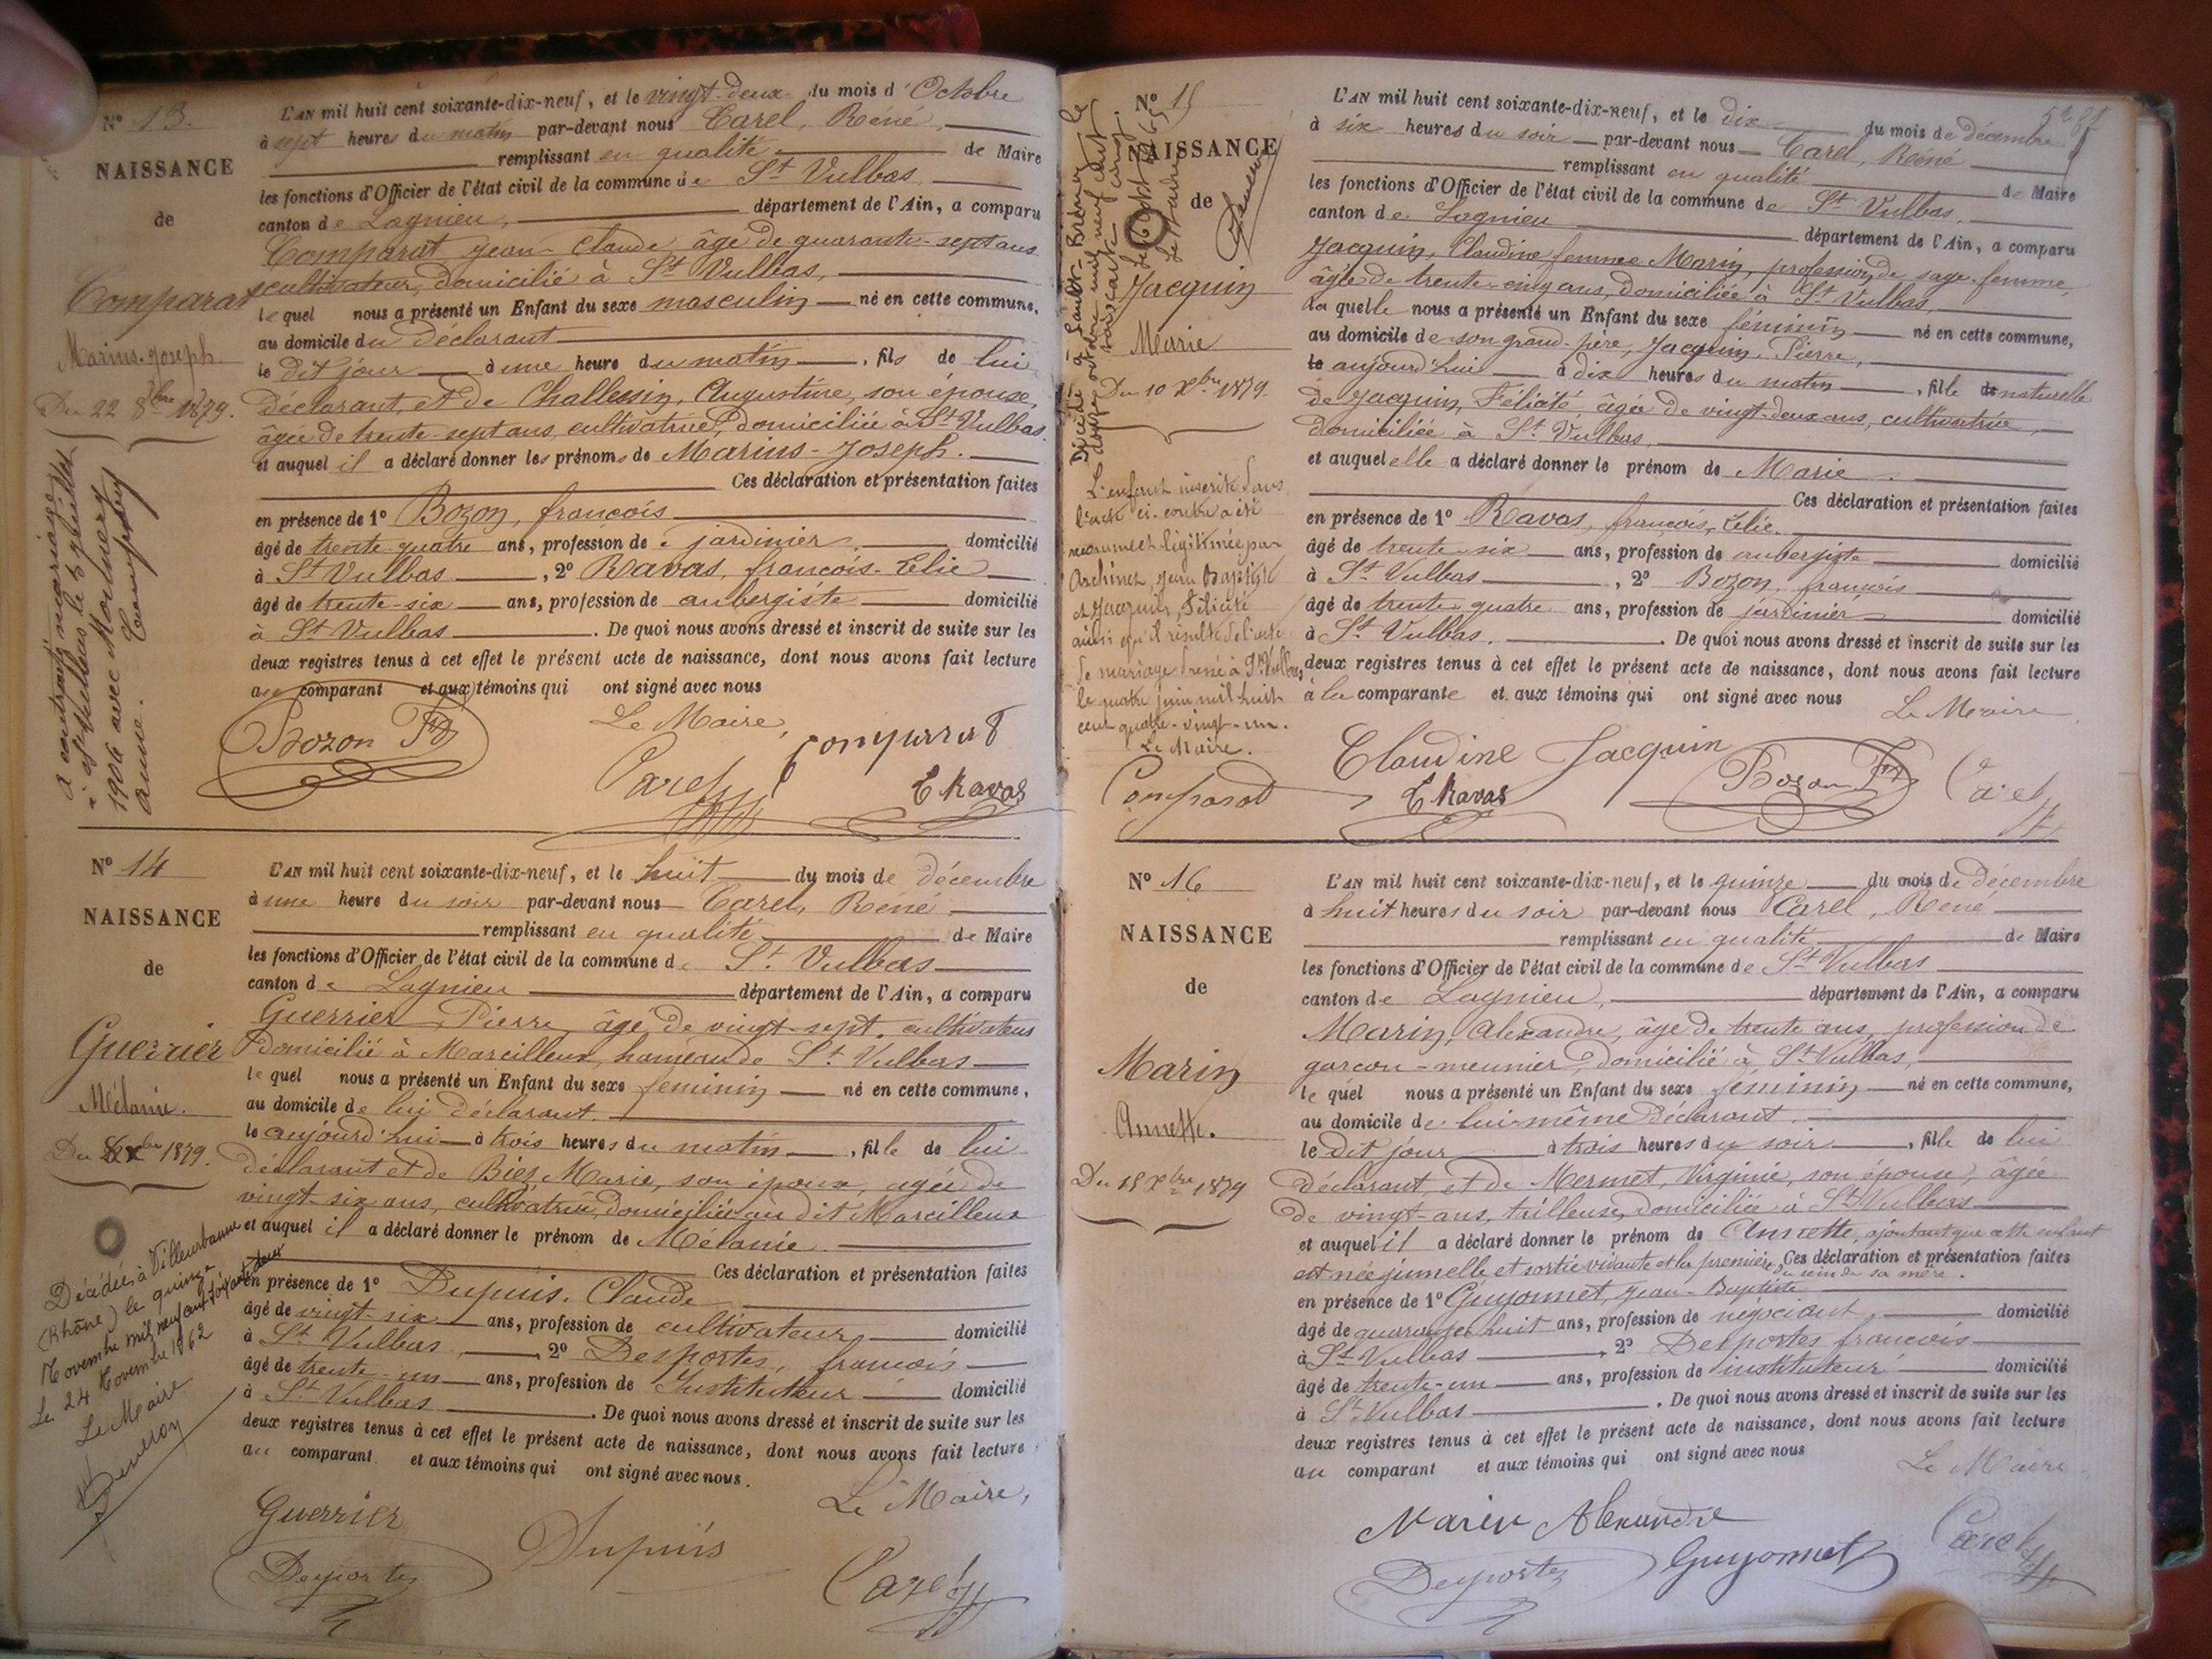 N° 13.
NAISSANCE
de
Comparat
Marius-Joseph
Du 22 8bre 1879.
A contracté mariage
à St Vulbas le 5 juillet
1906 avec
Anne.
L'AN mil huit cent soixante-dix-neuf, et le vingt-deux du mois d'Octobre
à sept heures du matin par-devant nous Carel, Réné,
remplissant en qualité de Maire
les fonctions d'Officier de l'état civil de la commune de St Vulbas
canton de Lagnieu, département de l'Ain, a comparu
Comparat Jean-Claude, âgé de quarante-sept ans
cultivateur, domicilié à St Vulbas,
lequel nous a présenté un Enfant du sexe masculin né en cette commune,
au domicile du déclarant
le dit jour à une heure du matin, fils de lui
déclarant, et de Augustine, son épouse,
âgée de trente-sept ans, cultivatrice, domiciliée à St Vulbas.
et auquel il a déclaré donner les prénoms de Marius-Joseph.
Ces déclaration et présentation faites
en présence de 1° Bozon, françois
âgé de trente-quatre ans, profession de jardinier, domicilié
à St Vulbas, 2° Ravas, françois-Élie
âgé de trente-six ans, profession de aubergiste domicilié
à St Vulbas. De quoi nous avons dressé et inscrit de suite sur les
deux registres tenus à cet effet le présent acte de naissance, dont nous avons fait lecture
au comparant et aux témoins qui ont signé avec nous
Le Maire,
Bozon Fs
Carel
Comparat
E Ravas
N° 14
NAISSANCE
de
Guerrier
Mélanie.
Du 8 Xbre 1879.
Décédée à Villeurbanne
(Rhône) le quinze
Novembre mil neuf cent soixante deux
Le 24 Novembre 1962
Le Maire
L'AN mil huit cent soixante-dix-neuf, et le huit du mois de décembre
à une heure du soir par-devant nous Carel, Réné
remplissant en qualité de Maire
les fonctions d'Officier de l'état civil de la commune de St. Vulbas
canton de Lagnieu département de l'Ain, a comparu
Guerrier, Pierre, âgé de vingt-sept, cultivateur
domicilié à Marcilleux, hameau de St Vulbas
lequel nous a présenté un Enfant du sexe féminin né en cette commune,
au domicile de lui déclarant.
le aujourd'hui à trois heures du matin, fille de lui
déclarant et de Marie, son épouse, agée de
vingt-six ans, cultivatrice, domiciliée au dit Marcilleux
et auquel il a déclaré donner le prénom de Mélanie.
Ces déclaration et présentation faites
en présence de 1° Dupuis, Claude
âgé de vingt-six ans, profession de cultivateur domicilié
à St Vulbas, 2° Desportes, françois
âgé de trente-un ans, profession de Instituteur domicilié
à St Vulbas. De quoi nous avons dressé et inscrit de suite sur les
deux registres tenus à cet effet le présent acte de naissance, dont nous avons fait lecture
au comparant et aux témoins qui ont signé avec nous.
Le Maire,
Guerrier
Dupuis
Desportes
Carel
N° 15
NAISSANCE
de
Jacquin
Marie
Du 10 Xbre 1879.
L'enfant inscrit dans
l'acte ci-contre a été
reconnu et légitimée par
Archinet, Jean Baptiste
et Jacquin, Félicité
ainsi qu'il résulte de l'acte
de mariage dressé à St Vulbas
le quatre juin mil huit
cent quatre-vingt-un.
Le Maire.
Comparat
L'AN mil huit cent soixante-dix-neuf, et le dix du mois de décembre
à six heures du soir par-devant nous Carel, Réné
remplissant en qualité de Maire
les fonctions d'Officier de l'état civil de la commune de St Vulbas,
canton de Lagnieu département de l'Ain, a comparu
Jacquin, Claudine femme Marin, profession de sage-femme,
âgée de trente-cinq ans, domiciliée à St Vulbas,
laquelle nous a présenté un Enfant du sexe féminin né en cette commune,
au domicile de son grand-père, Jacquin Pierre,
le aujourd'hui à dix heures du matin, fille de naturelle
de Jacquin, Félicité, âgée de vingt-deux ans, cultivatrice,
domiciliée à St Vulbas
et auquel elle a déclaré donner le prénom de Marie.
Ces déclaration et présentation faites
en présence de 1° Ravas, françois-Élie
âgé de trente-six ans, profession de aubergiste domicilié
à St Vulbas, 2° Bozon, françois
âgé de trente-quatre ans, profession de jardinier domicilié
à St Vulbas. De quoi nous avons dressé et inscrit de suite sur les
deux registres tenus à cet effet le présent acte de naissance, dont nous avons fait lecture
à la comparante et aux témoins qui ont signé avec nous
Le Maire,
Claudine Jacquin
E Ravas
Bozon Fs
Carel
N° 16
NAISSANCE
de
Marin
Annette.
Du 15 Xbre 1879
L'AN mil huit cent soixante-dix-neuf, et le quinze du mois de Décembre
à huit heures du soir par-devant nous Carel, René
remplissant en qualité de Maire
les fonctions d'Officier de l'état civil de la commune de St Vulbas
canton de Lagnieu, département de l'Ain, a comparu
Marin, Alexandre, âgé de trente ans, profession de
garçon-meunier, domicilié à St Vulbas,
lequel nous a présenté un Enfant du sexe féminin né en cette commune,
au domicile de lui-même déclarant.
le dit jour à trois heures du soir, fille de lui
déclarant, et de Mermet, Virginie, son épouse, âgée
de vingt-ans, tailleuse, domiciliée à St Vulbas
et auquel il a déclaré donner le prénom de Annette, ajoutant que cette enfant
est née jumelle et sortie vivante et la première du sein de sa mère. Ces déclaration et présentation faites
en présence de 1° Guyonnet, Jean-Baptiste
âgé de quarante huit ans, profession de négociant, domicilié
à St Vulbas, 2° Desportes françois
âgé de trente-un ans, profession de instituteur domicilié
à St Vulbas. De quoi nous avons dressé et inscrit de suite sur les
deux registres tenus à cet effet le présent acte de naissance, dont nous avons fait lecture
au comparant et aux témoins qui ont signé avec nous
Le Maire
Marin Alexandre
Desportes
Guyonnet
Carel